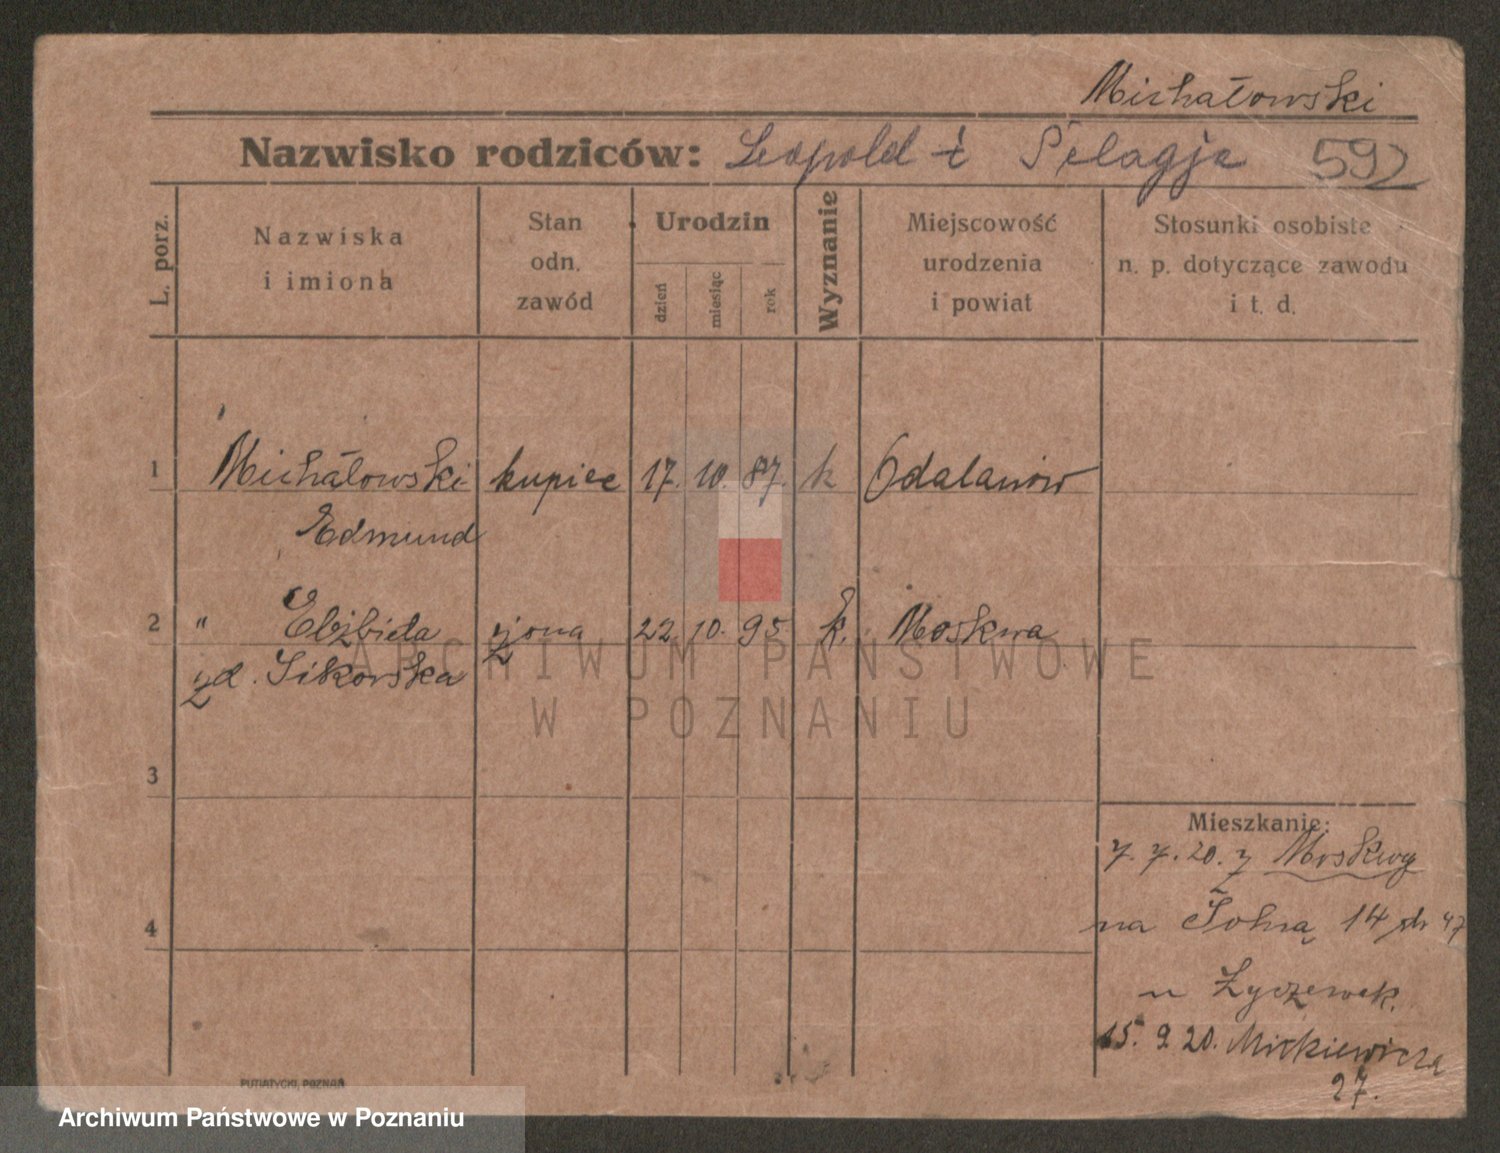 Michałowski
Nazwisko rodziców: Leopold i Pelagja 592
L. porz.
Nazwiska
i imiona
Stan
odn.
zawód
Urodzin
dzień
miesiąc
rok
Wyznanie
Miejscowość
urodzenia
i powiat
Stosunki osobiste
n. p. dotyczące zawodu
i t. d.
1 Michałowski kupiec 17. 10. 87. k Odalanów
Edmund
2 " Elżbieta żona 22. 10. 95. k. Moskwa
zd. Sikorska
ARCHIWUM PAŃSTWOWE
W POZNANIU
3
Mieszkanie:
7. 7. 20. z Moskwy
4
na 14
u
15. 9. 20. Mickiewicza
27.
PUTIATYCKI, POZNAŃ
Archiwum Państwowe w Poznaniu